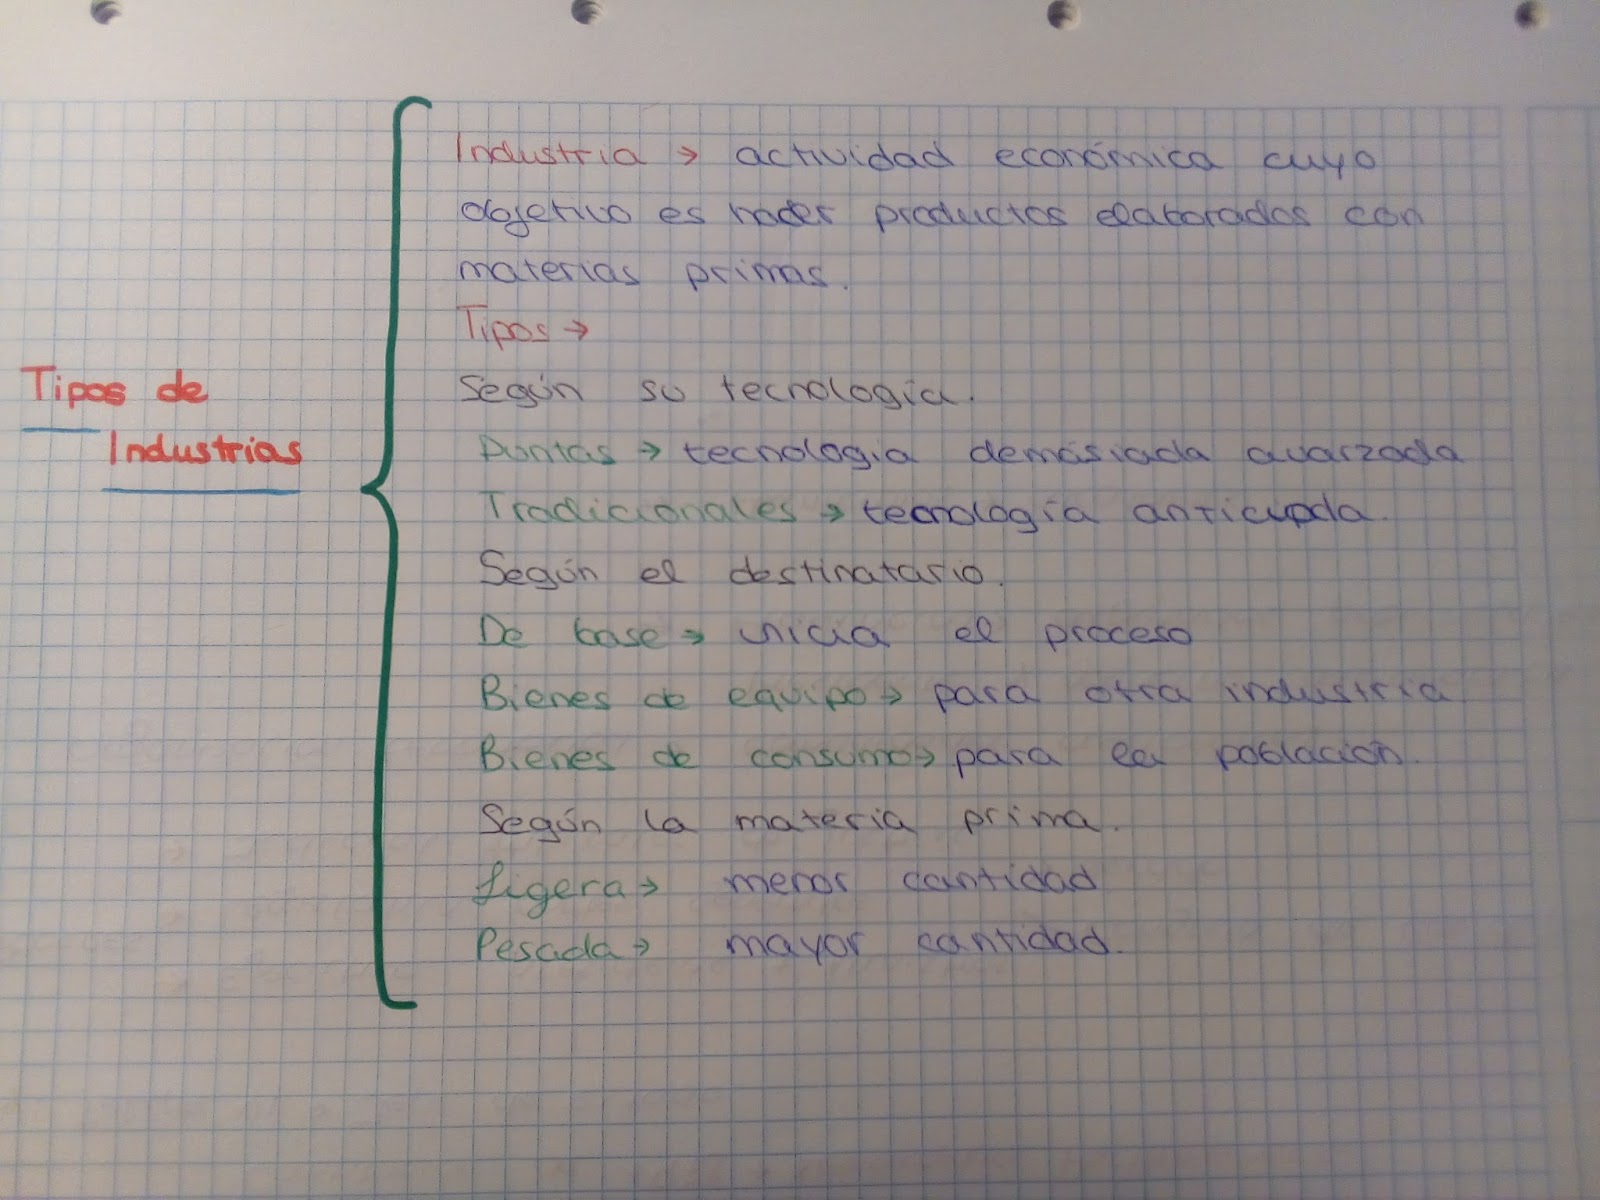 Tipos de
Industrias
Industria → actividad económica cuyo
objetivo es hacer productos elaborados con
materias primas.
Tipos →
Según su tecnología.
Puntas → tecnología demasiada avanzada
Tradicionales → tecnología anticuada.
Según el destinatario.
De base → inicia el proceso
Bienes de equipo → para otra industria
Bienes de consumo → para la población.
Según la materia prima.
Ligera → menor cantidad
Pesada → mayor cantidad.